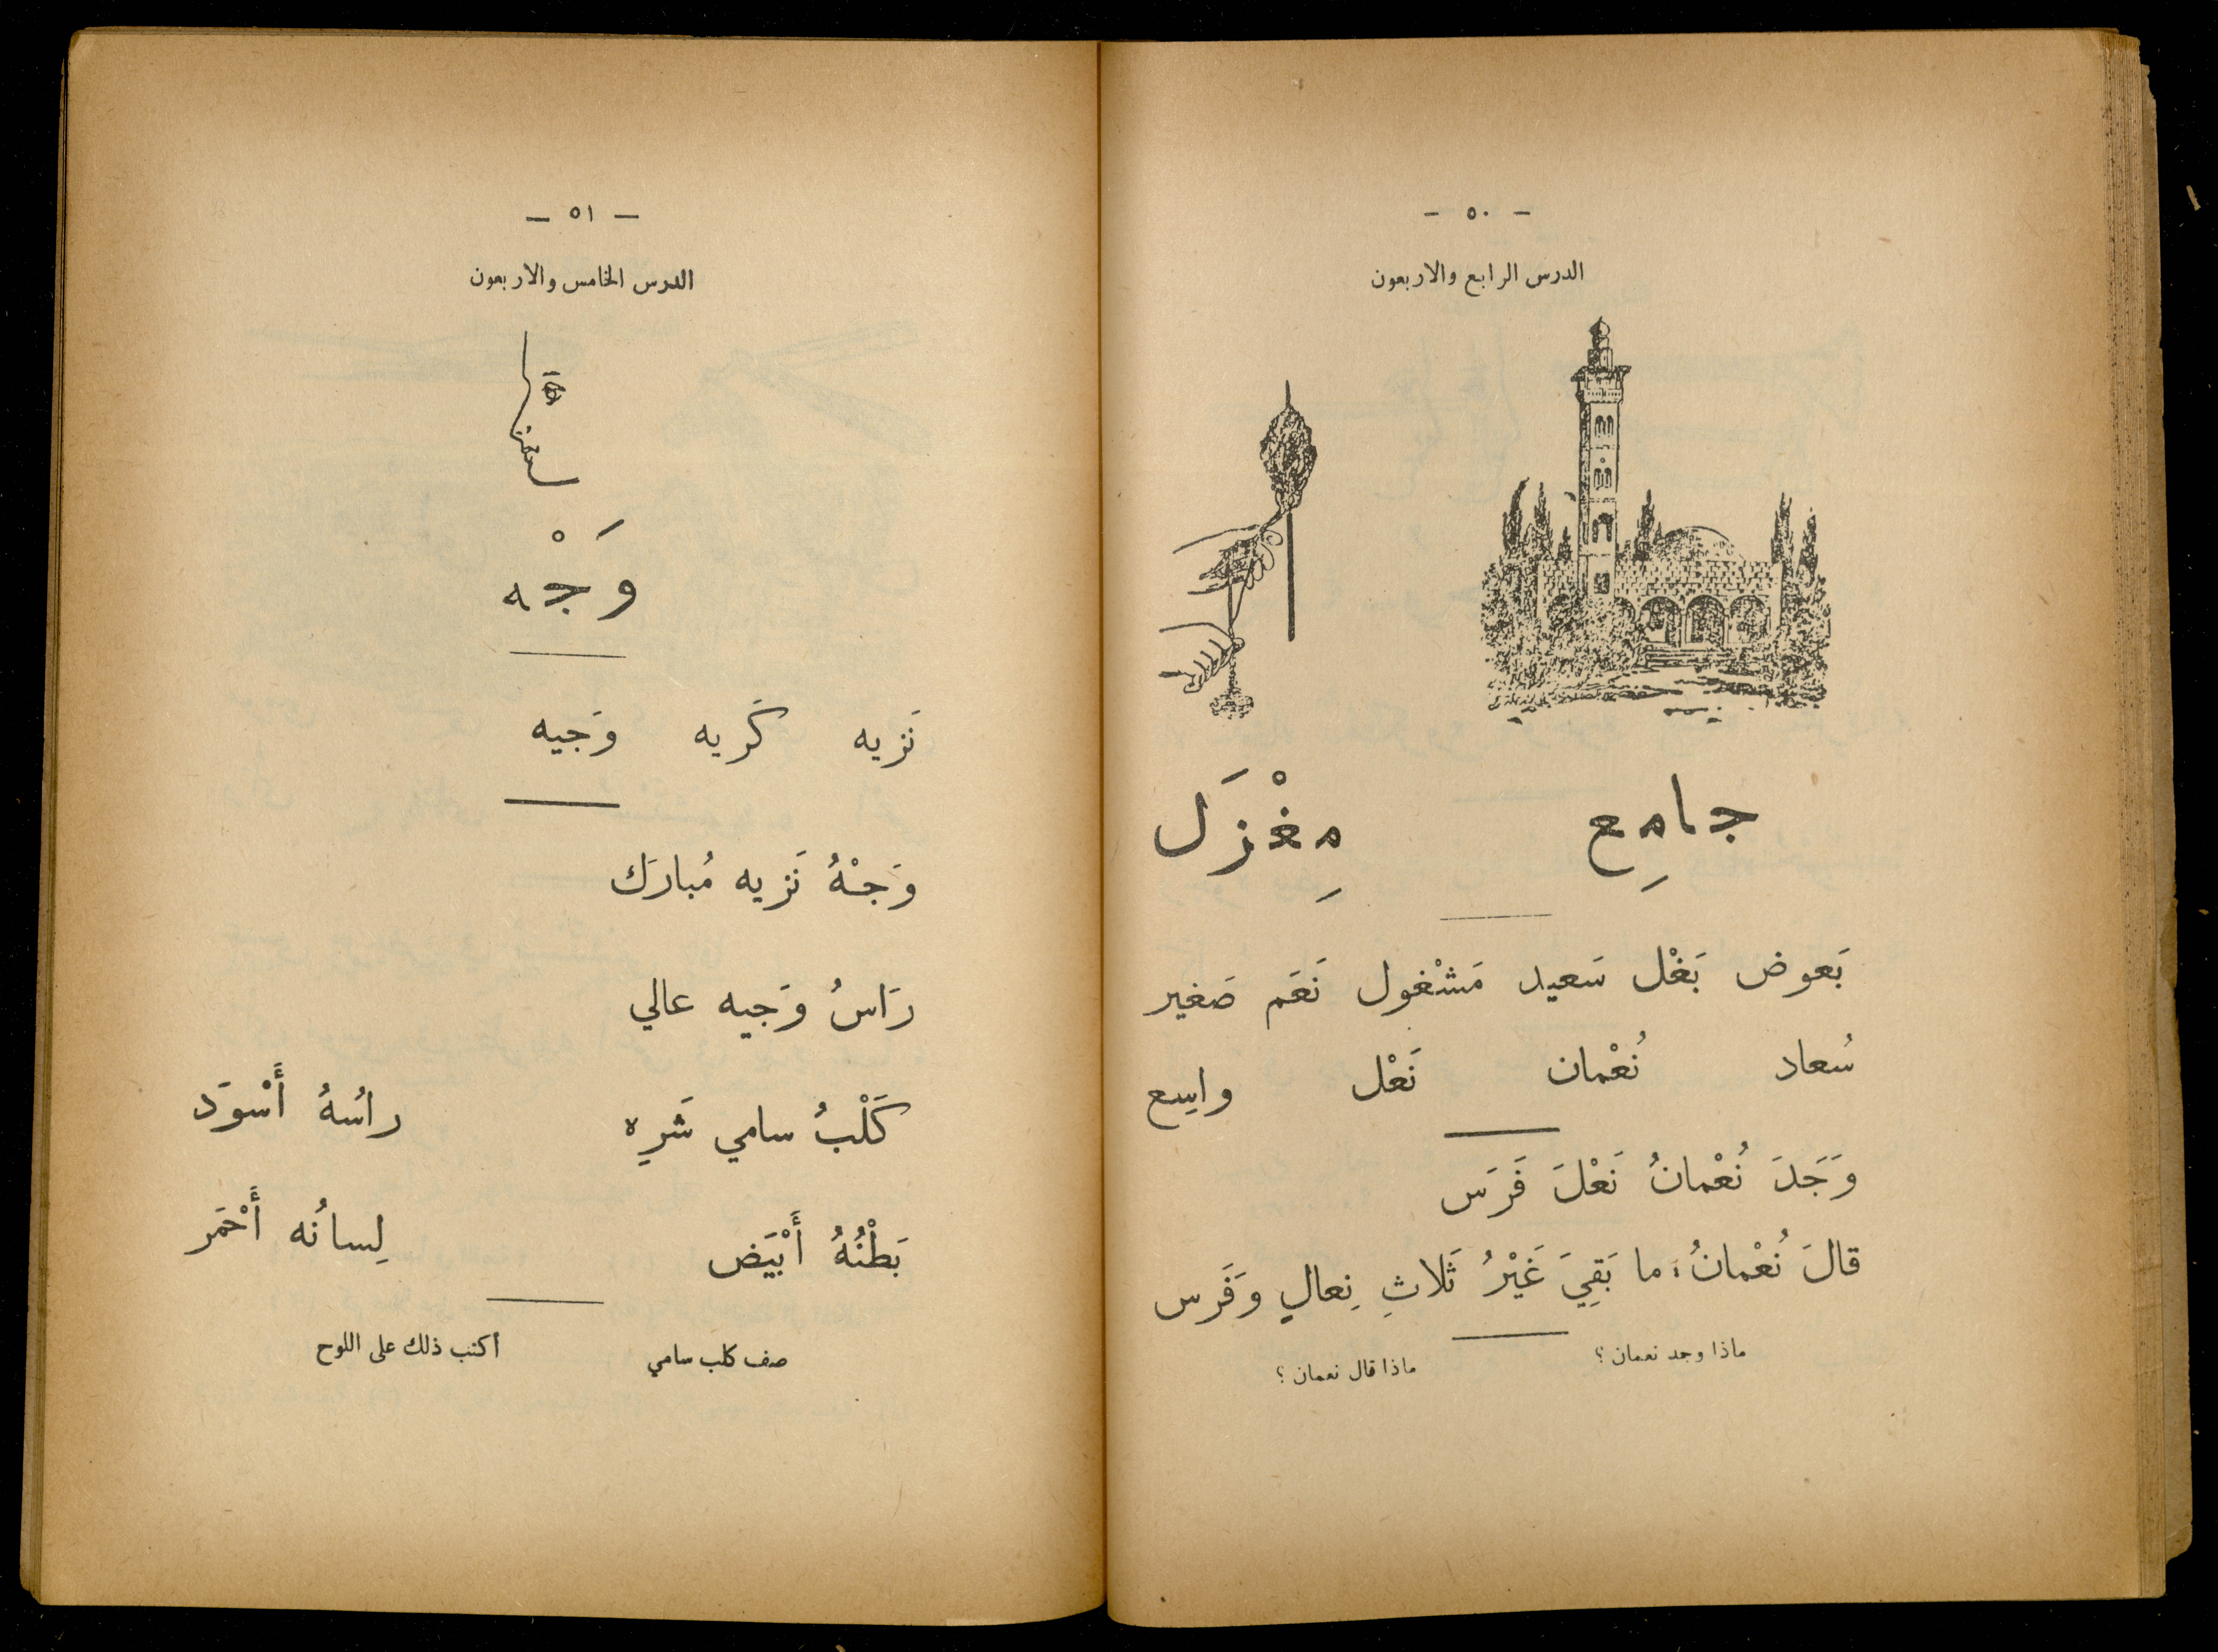 — ٥٠ —
الدرس الرابع والاربعون
جامِع مِغْزَل
بَعوض بَغْل سَعيد مَشْغول نَعَم صَغير
سُعاد نُعْمان نَعْل واسِع
وَجَدَ نُعْمانُ نَعْلَ فَرَس
قالَ نُعْمانُ: ما بَقِيَ غَيْرُ ثَلاثِ نِعالٍ وَفَرَس
ماذا وجد نعمان ؟ ماذا قال نعمان ؟
— ٥١ —
الدرس الخامس والاربعون
وَجْه
نَزيه كَريه وَجيه
وَجْهُ نَزيه مُبارَك
رَاسُ وَجيه عالي
كَلْبُ سامي شَرِه راسُهُ أَسْوَد
بَطْنُهُ أَبْيَض لِسانُه أَحْمَر
صف كلب سامي أكتب ذلك على اللوح